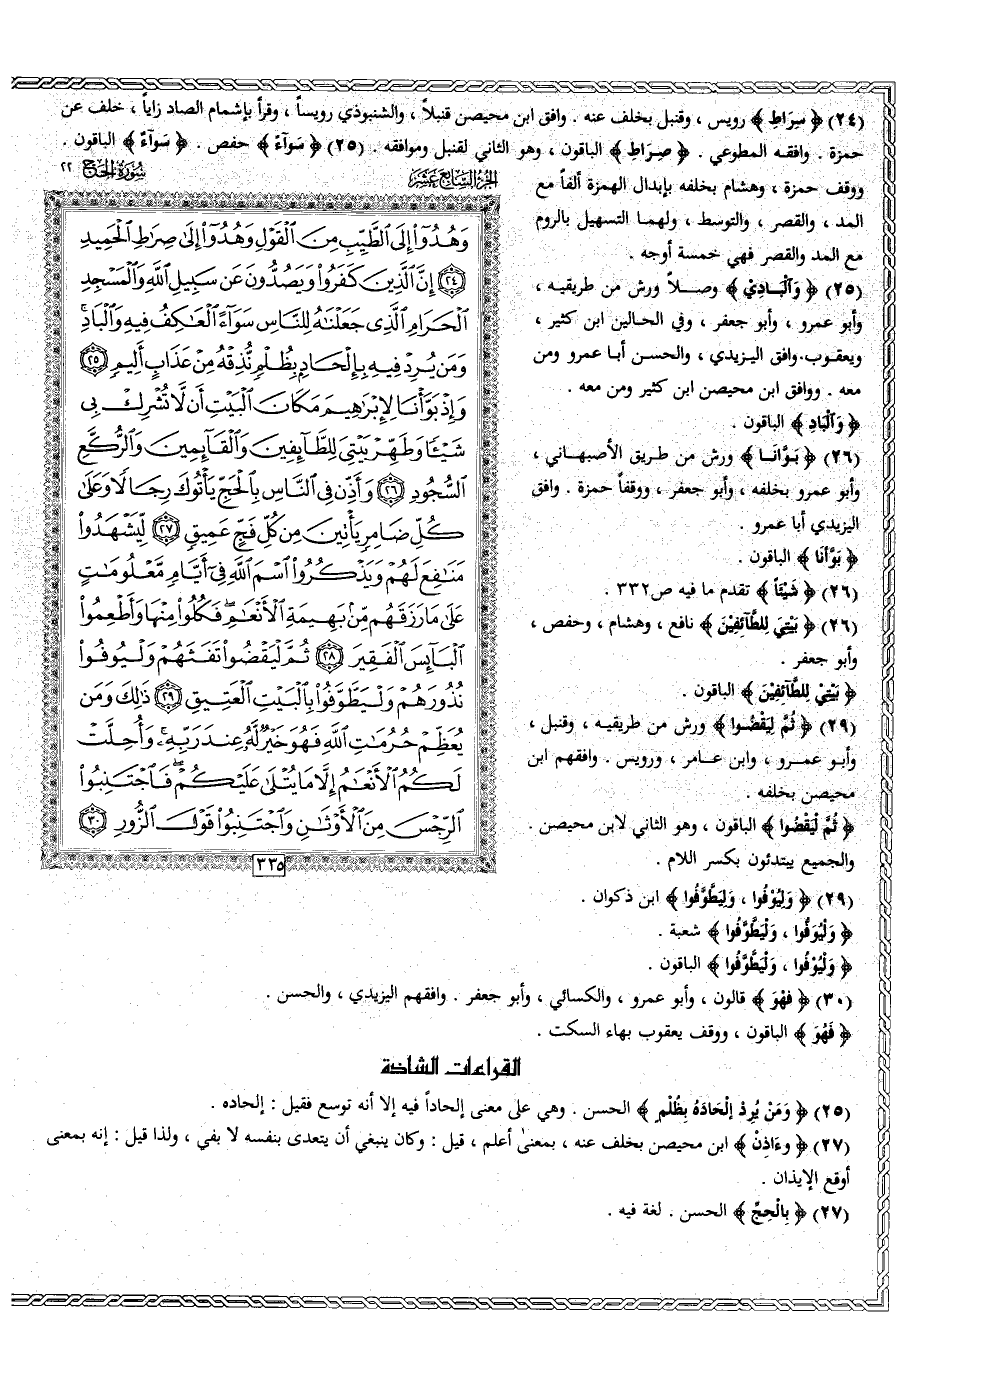 (٢٤) ﴿ سِرَاطِ ﴾ رويس ، وقنبل بخلف عنه . وافق ابن محيصن قنبلاً ، والشنبوذي رويساً ، وقرأ بإشمام الصاد زاياً ، خلف عن
حمزة . وافقه المطوعي . ﴿ صِرَاطِ ﴾ الباقون ، وهو الثاني لقنبل وموافقه . (٢٥) ﴿ سَوَآءً ﴾ حفص . ﴿ سَوَآءٌ ﴾ الباقون .
ووقف حمزة ، وهشام بخلفه بإبدال الهمزة ألفاً مع
المد ، والقصر ، والتوسط ، ولهما التسهيل بالروم
مع المد والقصر فهي خمسة أوجه .
(٢٥) ﴿ وَٱلْبَادِي ﴾ وصلاً ورش من طريقيه ،
وأبو عمرو ، وأبو جعفر ، وفي الحالين ابن كثير ،
ويعقوب. وافق اليزيدي ، والحسن أبا عمرو ومن
معه . ووافق ابن محيصن ابن كثير ومن معه .
﴿ وَٱلْبَادِ ﴾ الباقون .
(٢٦) ﴿ بَوَّانَا ﴾ ورش من طريق الأصبهاني ،
وأبو عمرو بخلفه ، وأبو جعفر ، ووقفاً حمزة . وافق
اليزيدي أبا عمرو .
﴿ بَوَّأنَا ﴾ الباقون .
(٢٦) ﴿ شَيْئاً ﴾ تقدم ما فيه ص٣٣٢ .
(٢٦) ﴿ بَيْتِيَ لِلطَّآئِفِيْنَ ﴾ نافع ، وهشام ، وحفص ،
وأبو جعفر .
﴿ بَيْتِيْ لِلطَّآئِفِيْنَ ﴾ الباقون .
(٢٩) ﴿ ثُمَّ لِيَقْضُوا ﴾ ورش من طريقيه ، وقنبل ،
وأبو عمرو ، وابن عامر ، ورويس . وافقهم ابن
محيصن بخلفه .
﴿ ثُمَّ لْيَقْضُوا ﴾ الباقون ، وهو الثاني لابن محيصن .
والجميع يبتدئون بكسر اللام .
(٢٩) ﴿ وَلِيُوْفُوا ، وَلِيَطَّوَّفُوا ﴾ ابن ذكوان .
﴿ وَلْيُوَفُّوا ، وَلْيَطَّوَّفُوا ﴾ شعبة .
﴿ وَلْيُوْفُوا ، وَلْيَطَّوَّفُوا ﴾ الباقون .
(٣٠) ﴿ فَهْوَ ﴾ قالون ، وأبو عمرو ، والكسائي ، وأبو جعفر . وافقهم اليزيدي ، والحسن .
﴿ فَهُوَ ﴾ الباقون ، ووقف يعقوب بهاء السكت .
الجزء السابع عشر
سورة الحج ٢٢
وَهُدُوٓاْ إِلَى ٱلطَّيِّبِ مِنَ ٱلْقَوْلِ وَهُدُوٓاْ إِلَىٰ صِرَٰطِ ٱلْحَمِيدِ
٢٤ إِنَّ ٱلَّذِينَ كَفَرُواْ وَيَصُدُّونَ عَن سَبِيلِ ٱللَّهِ وَٱلْمَسْجِدِ
ٱلْحَرَامِ ٱلَّذِى جَعَلْنَٰهُ لِلنَّاسِ سَوَآءً ٱلْعَٰكِفُ فِيهِ وَٱلْبَادِ ۚ
وَمَن يُرِدْ فِيهِ بِإِلْحَادٍۭ بِظُلْمٍ نُّذِقْهُ مِنْ عَذَابٍ أَلِيمٍ ٢٥
وَإِذْ بَوَّأْنَا لِإِبْرَٰهِيمَ مَكَانَ ٱلْبَيْتِ أَن لَّا تُشْرِكْ بِى
شَيْـًٔا وَطَهِّرْ بَيْتِىَ لِلطَّآئِفِينَ وَٱلْقَآئِمِينَ وَٱلرُّكَّعِ
ٱلسُّجُودِ ٢٦ وَأَذِّن فِى ٱلنَّاسِ بِٱلْحَجِّ يَأْتُوكَ رِجَالًا وَعَلَىٰ
كُلِّ ضَامِرٍ يَأْتِينَ مِن كُلِّ فَجٍّ عَمِيقٍ ٢٧ لِّيَشْهَدُواْ
مَنَٰفِعَ لَهُمْ وَيَذْكُرُواْ ٱسْمَ ٱللَّهِ فِىٓ أَيَّامٍ مَّعْلُومَٰتٍ
عَلَىٰ مَا رَزَقَهُم مِّنۢ بَهِيمَةِ ٱلْأَنْعَٰمِ ۖ فَكُلُواْ مِنْهَا وَأَطْعِمُواْ
ٱلْبَآئِسَ ٱلْفَقِيرَ ٢٨ ثُمَّ لْيَقْضُواْ تَفَثَهُمْ وَلْيُوفُواْ
نُذُورَهُمْ وَلْيَطَّوَّفُواْ بِٱلْبَيْتِ ٱلْعَتِيقِ ٢٩ ذَٰلِكَ وَمَن
يُعَظِّمْ حُرُمَٰتِ ٱللَّهِ فَهُوَ خَيْرٌ لَّهُۥ عِندَ رَبِّهِۦ ۗ وَأُحِلَّتْ
لَكُمُ ٱلْأَنْعَٰمُ إِلَّا مَا يُتْلَىٰ عَلَيْكُمْ ۖ فَٱجْتَنِبُواْ
ٱلرِّجْسَ مِنَ ٱلْأَوْثَٰنِ وَٱجْتَنِبُواْ قَوْلَ ٱلزُّورِ ٣٠
٣٣٥
القراءات الشاذة
(٢٥) ﴿ وَمَنْ يُرِدْ إلْحَادَهُ بِظُلْمٍ ﴾ الحسن . وهي على معنى إلحاداً فيه إلا أنه توسع فقيل : إلحاده .
(٢٧) ﴿ وءَاذِنْ ﴾ ابن محيصن بخلف عنه ، بمعنىٰ أعلم ، قيل : وكان ينبغي أن يتعدى بنفسه لا بفي ، ولذا قيل : إنه بمعنى
أوقع الإيذان .
(٢٧) ﴿ بِالْحِجِّ ﴾ الحسن . لغة فيه .